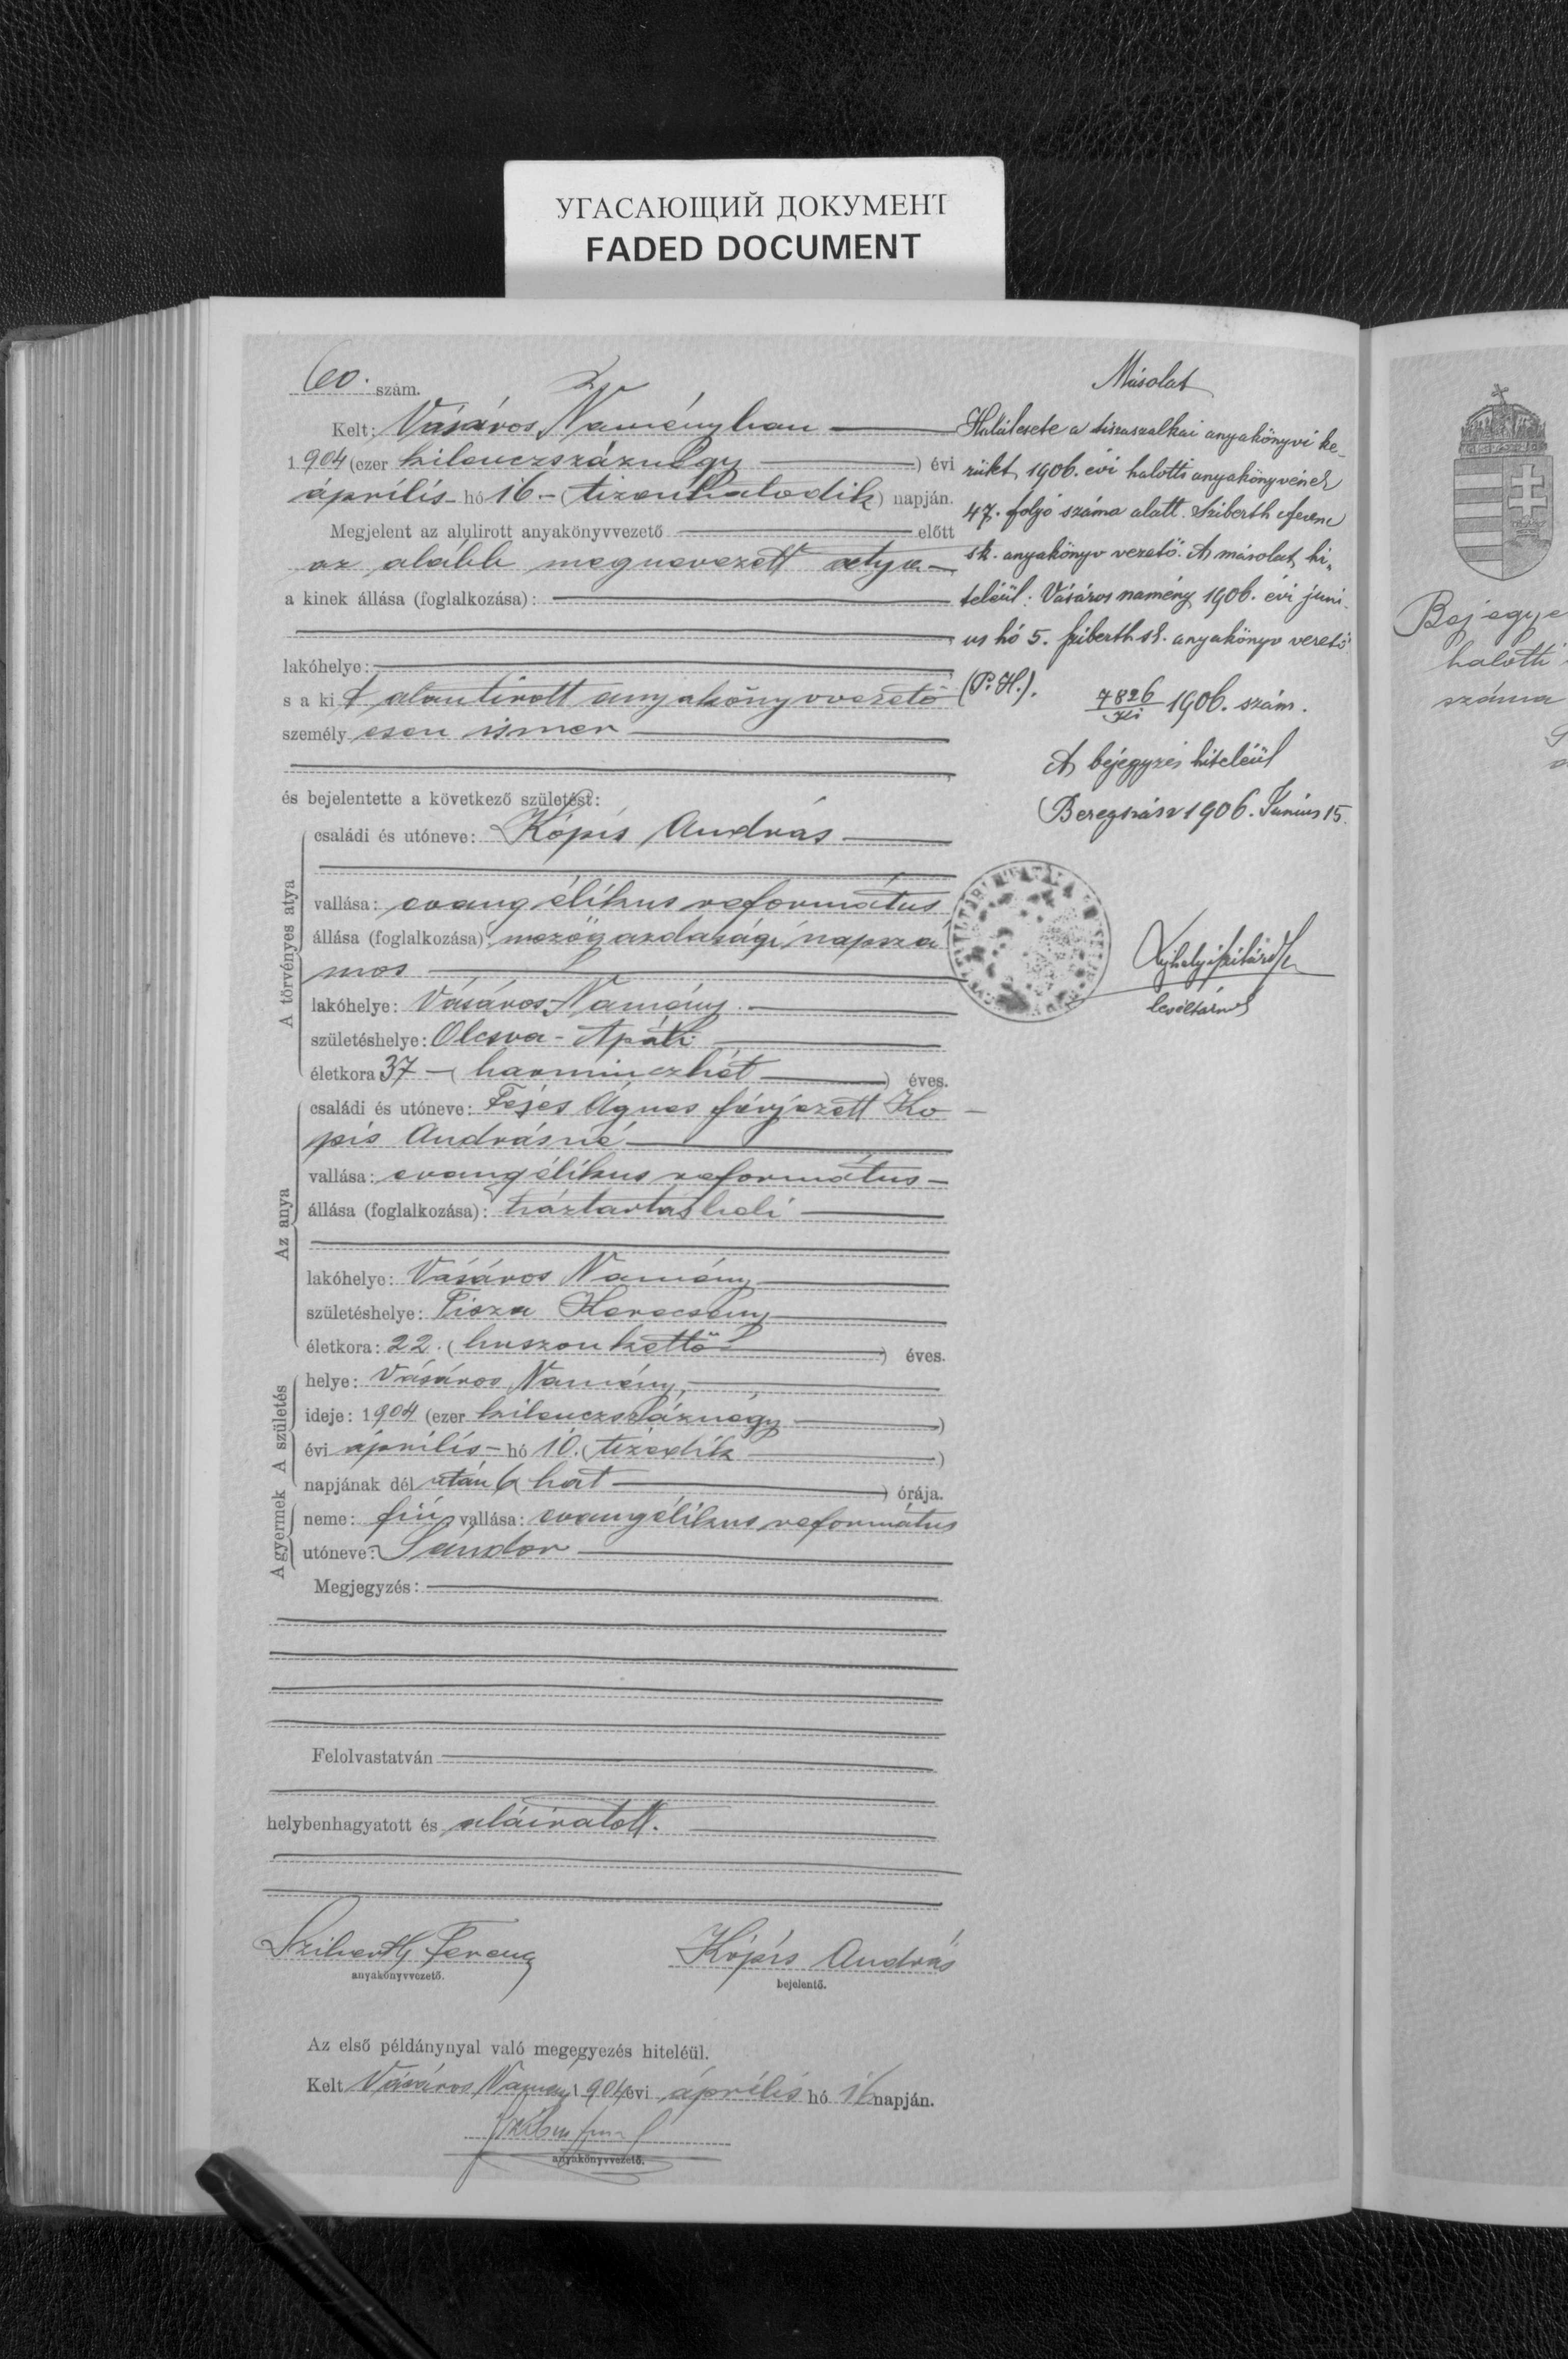 УГАСАЮЩИЙ ДОКУМЕНТ
FADED DOCUMENT
60. szám.
Kelt: Vásáros Naményban
1904 (ezer kilenczszáznégy) évi
április hó 16 (tizenhatodik) napján.
Megjelent az alulirott anyakönyvvezető előtt
az alább megnevezett atya
a kinek állása (foglalkozása):
lakóhelye:
s a kit alantirott anyakönyvvezető
személyesen ismer
és bejelentette a következő születést:
A törvényes atya
családi és utóneve: Kópis András
vallása: evangélikus református
állása (foglalkozása): mezőgazdasági napszá
mos
lakóhelye: Vásáros-Namény
születéshelye: Olcsva-Apáti
életkora 37 (harminczhét) éves.
Az anya
családi és utóneve: Fejes Ágnes férjezett Ko
pis Andrásné
vallása: evangélikus református
állása (foglalkozása): háztartásbeli
lakóhelye: Vásáros Namény
születéshelye: Tisza Kerecseny
életkora: 22. (huszonkettő) éves.
A születés
helye: Vásáros Namény,
ideje: 1904 (ezer kilenczszáznégy)
évi április hó 10. (tizedik)
napjának dél után 6 (hat) órája.
A gyermek
neme: fiú, vallása: evangélikus református
utóneve: Sándor
Megjegyzés:
Felolvastatván
helybenhagyatott és aláiratott.
Sziberth Ferencz
anyakönyvvezető.
Kópis András
bejelentő.
Az első példánynyal való megegyezés hiteléül.
Kelt Vásáros Namény 1904 évi április hó 16 napján.
anyakönyvvezető.
Másolat
Halálesete a tiszaszalkai anyakönyvi ke-
rület 1906. évi halotti anyakönyvének
47. folyó száma alatt. Sziberth Ferenc
sk. anyakönyv vezető. A másolat hi-
teléül. Vásáros namény 1906. évi juni-
us hó 5. Sziberth sk. anyakönyv vezető
(P. H.). 7826/Ki 1906. szám.
A bejegyzés hiteléül
Beregszász 1906. Június 15.
levéltárnok
Bejegye
halotti
száma